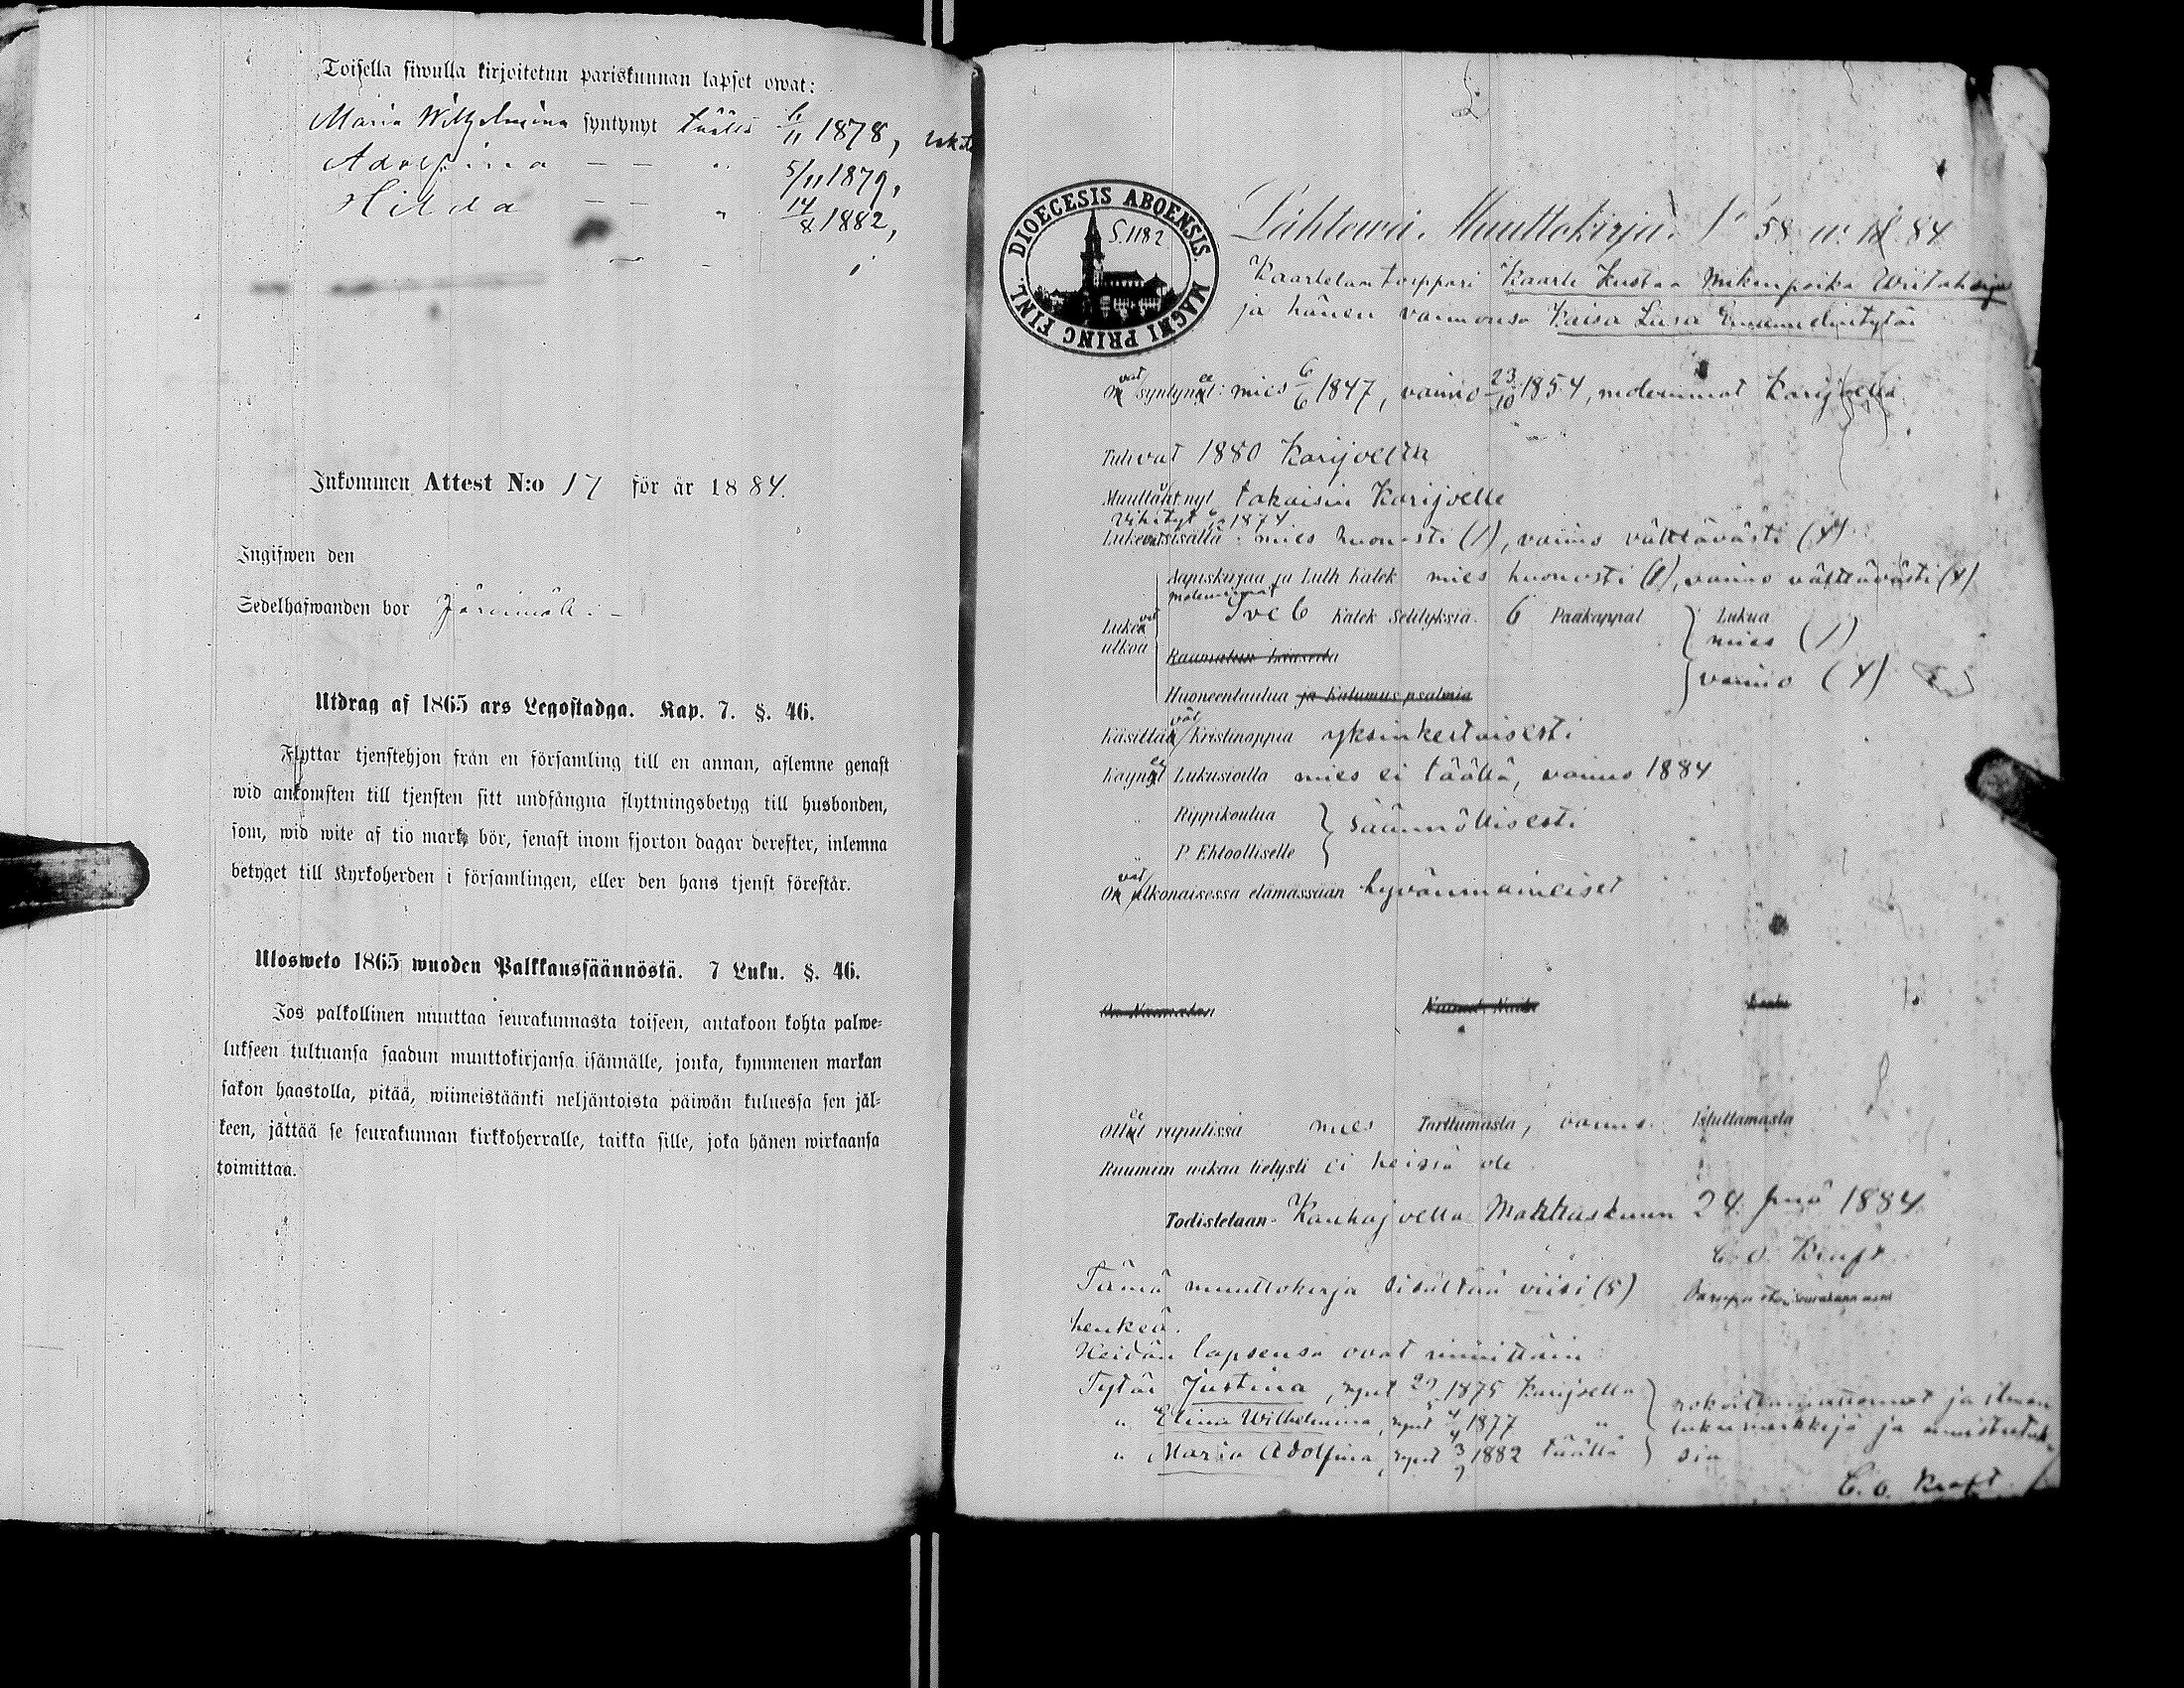 Toisella siwulla kirjoitetun pariskunnan lapset owat:
Maria Wilhelmina syntynyt täällä 6/11 1878,
Adolfina — — " 5/11 1879,
Hilda — — " 14/8 1882,
Inkommen Attest N:o 17 för år 1884.
Ingifwen den
Sedelhafwanden bor
Utdrag af 1865 ars Legostadga. Kap. 7. §. 46.
Flyttar tjenstehjon från en församling till en annan, aflemne genast
wid ankomsten till tjensten sitt undfångna flyttningsbetyg till husbonden,
som, wid wite af tio mark, bör, senast inom fjorton dagar derefter, inlemna
betyget till Kyrkoherden i församlingen, eller den hans tjenst förestår.
Ulosweto 1865 wuoden Palkkaussäännöstä. 7 Luku. §. 46.
Jos palkollinen muuttaa seurakunnasta toiseen, antakoon kohta palwe-
lukseen tultuansa saadun muuttokirjansa isännälle, jonka, kymmenen markan
sakon haastolla, pitää, wiimeistäänki neljäntoista päiwän kuluessa sen jäl-
keen, jättää se seurakunnan kirkkoherralle, taikka sille, joka hänen wirkaansa
toimittaa.
DIOECESIS ABOENSIS. MAGNI PRINC FINL.
S. 1182
Lähtevä Muuttokirja 58 84
Kaarle Kustaa
ja hänen vaimonsa Kaisa Liisa Emanuelintytär
Ovat syntyneet: mies 6/6 1847, vaimo 23/10 1854, molemmat Karijoella
Tulivat 1880 Karijoelta
Muuttavat nyt takaisin Karijoelle
Vihityt 1874
Lukevat sisältä: mies huonosti (1), vaimo välttävästi (4)
Aapiskirjaa ja Luth Katek mies huonosti (1), vaimo välttävästi (4)
molemmat
Lukevat ulkoa
Sveb Katek Selityksiä. 6 Pääkappal Lukua
mies (1)
vaimo (4)
Huoneentaulua ja Katumus psalmia
Käsittävät Kristinoppia yksinkertaisesti
Käyneet Lukusialla mies ei täällä, vaimo 1884
Rippikoulua
säännöllisesti
P. Ehtoolliselle
Ovat ulkonaisessa elämässään hyvänmaineiset
Olleet rupulissa mies Tarttumasta, vaimo Istuttamasta
Ruumiin wikaa tietysti ei heissä ole
Todistetaan Kauhajoella Marraskuun 24 p:nä 1884
C. O. Kraft
Tämä muuttokirja sisältää viisi (5)
henkeä.
Heidän lapsensa ovat nimittäin
Tytär Justina, synt 1875 Karijoella
" Elina Wilhelmina, synt 4/4 1877 "
" Maria Adolfina, synt 3/9 1882 täällä
rokoittamattomat ja ilman
lukumerkkejä ja
C. O. Kraft